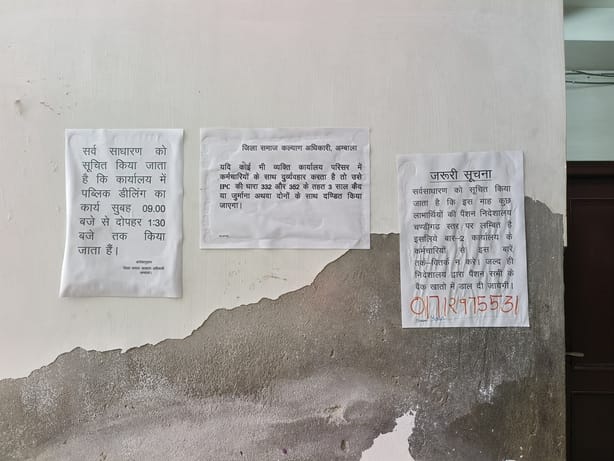 सर्व साधारण को
सूचित किया जाता
है कि कार्यालय में
पब्लिक डीलिंग का
कार्य सुबह 09.00
बजे से दोपहर 1:30
बजे तक किया
जाता हैं।
जिला समाज कल्याण अधिकारी
अम्बाला।
जिला समाज कल्याण अधिकारी, अम्बाला
यदि कोई भी व्यक्ति कार्यालय परिसर में
कर्मचारियों के साथ दुर्व्यवहार करता है तो उसे
IPC की धारा 332 और 352 के तहत 3 साल कैद
या जुर्माना अथवा दोनों के साथ दण्डित किया
जाएगा।
जरूरी सूचना
सर्वसाधारण को सूचित किया
जाता है कि इस माह कुछ
लाभार्थियों की पैंशन निदेशालय
चण्डीगढ़ स्तर पर लम्बित है
इसलिये बार-2 कार्यालय के
कर्मचारियों से इस बारे
तर्क-वितर्क न करें। जल्द ही
निदेशालय द्वारा पैंशन सभी के
बैंक खातो में डाल दी जायेगी।
01712975531